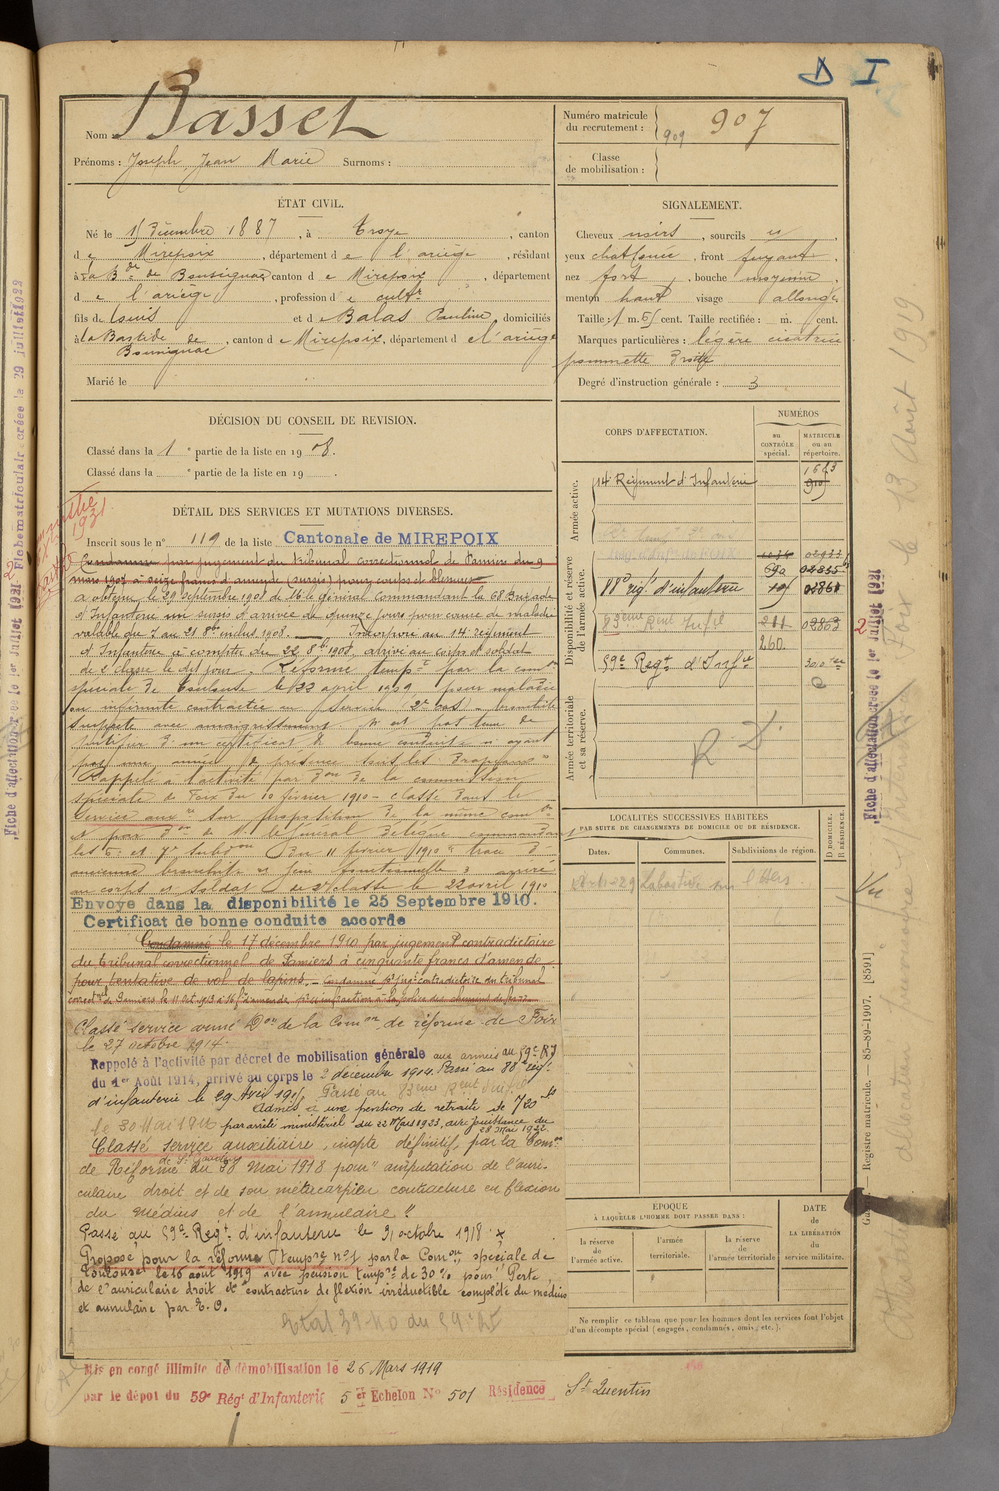 D I
Nom : Basset
Prénoms : Joseph, Jean Marie Surnoms :
Numéro matricule du recrutement : 909 907
Classe de mobilisation :
ÉTAT CIVIL.
Né le 15 Décembre 1887, à Troye, canton
de Mirepoix, département de l'ariège, résidant
à La Bde de Bousignac canton de Mirepoix, département
de l'ariège, profession de cultr
fils de Louis et de Balas Pauline, domiciliés
à La Bastide de Bousignac, canton de Mirepoix, département de l'ariège
Marié le
SIGNALEMENT.
Cheveux noirs, sourcils
yeux, front fuyant,
nez fort, bouche moyenne
menton haut visage allongé
Taille : 1 m. 65 cent. Taille rectifiée : m. cent.
Marques particulières : légère cicatrice
pommette droite
Degré d'instruction générale : 3
DÉCISION DU CONSEIL DE REVISION.
Classé dans la 1e partie de la liste en 1908.
Classé dans la e partie de la liste en 19 .
DÉTAIL DES SERVICES ET MUTATIONS DIVERSES.
Inscrit sous le n° 119 de la liste Cantonale de MIREPOIX
Condamné par jugement du tribunal correctionnel de Pamiers du 9
mars 1907 à seize francs d'amende (sursis) pour coups et blessures
A obtenu le 29 septembre 1908 de M. le général Commandant la 68 Brigade
d'Infanterie un sursis d'arrivée de quinze jours pour cause de maladie
valable du 7 au 21 8bre inclus 1908. Incorporé au 14e régiment
d'Infanterie à compter du 22 8bre 1908, arrivé au corps et soldat
de 2e classe le dit jour. Réformé tempre par la comon
spéciale de Toulouse le 22 avril 1909 pour maladie
ou infirmité contractée au service 2e cas bronchite
suspecte avec amaigrissement. N'est pas tenu de
justifier d'un certificat de bonne conduite ayant
pas une année de présence sous les drapeaux
Rappelé à l'activité par don de la commission
spéciale de Foix du 10 février 1910 - classé dans le
service auxre sur proposition de la même comon
et par don de M. le Général Délégué commandant
les 6e et 7e subdons du 11 février 1910 "trace d'
ancienne bronchite et fonctionnelle" arrivé
au corps et soldat de 2e classe le 22 avril 1910
Envoyé dans la disponibilité le 25 Septembre 1910.
Certificat de bonne conduite accordé
Condamné le 17 décembre 1910 par jugement contradictoire
du tribunal correctionnel de Pamiers à cinquante francs d'amende
pour tentative de vol de lapins. Condamné pr jugt contradictoire du tribunal
correctel de Pamiers le 11 oct 1913 à 16 f d'amende pr infraction à la police des chemins de fer
Classé service armé Don de la Comon de réforme de Foix
le 27 octobre 1914.
Rappelé à l'activité par décret de mobilisation générale aux armées au 59e RI
du 1er Août 1914, arrivé au corps le 2 décembre 1914. Passé au 88e régt
d'infanterie le 29 Avril 1915. Passé au 83eme Regt d'infie
le 30 Mai 19
Admis à une pension de retraite de 720
par arrêté ministériel du 22 Mars 1923, avec jouissance du 28 Mai 1922.
Classé service auxiliaire, inapte définitif, par la Comon
de Réforme de St Gaudens du 28 mai 1918 pour "amputation de l'auri-
culaire droit et de son métacarpien contracture en flexion
du médius et de l'annulaire".
Passé au 59e Regt d'infanterie le 31 octobre 1918. x
Proposé pour la réforme Tempre n°1 par la Comon spéciale de
Toulouse le 16 août 1919 avec pension tempre de 30 % pour Perte
de l'auriculaire droit et contracture de flexion irréductible complète du médius
et annulaire par E. O.
Mis en congé illimité de démobilisation le 26 Mars 1919
par le dépôt du 59e Régt d'Infanterie 5e Echelon N° 501 Résidence St Quentin
CORPS D'AFFECTATION.
NUMÉROS
AU CONTRÔLE spécial.
MATRICULE ou au répertoire.
Armée active.
14e Régiment d'Infanterie 1683
910
Disponibilité et réserve de l'armée active.
690 02835
88e régt d'infanterie
83eme Regt Infie 211 02863
260.
59e Regt d'Infie
Armée territoriale et sa réserve.
R. D.
LOCALITÉS SUCCESSIVES HABITÉES
PAR SUITE DE CHANGEMENTS DE DOMICILE OU DE RÉSIDENCE.
Dates. Communes. Subdivisions de région. D DOMICILE. R RÉSIDENCE.
Labastide sur l'Hers
ÉPOQUE
À LAQUELLE L'HOMME DOIT PASSER DANS :
la réserve de l'armée active.
l'armée territoriale.
la réserve de l'armée territoriale
DATE de LA LIBÉRATION du service militaire.
Ne remplir ce tableau que pour les hommes dont les services font l'objet
d'un décompte spécial (engagés, condamnés, omis, etc.).
Registre matricule. — 85-89-1907. [8591]
Fiche d'affectation créée le 1er Juillet 1931
Vu
Foix le 13 Août 1919
Fiche d'affectation créée le 1er Juillet 1931 Fiche matriculaire créée le 29 juillet 1932